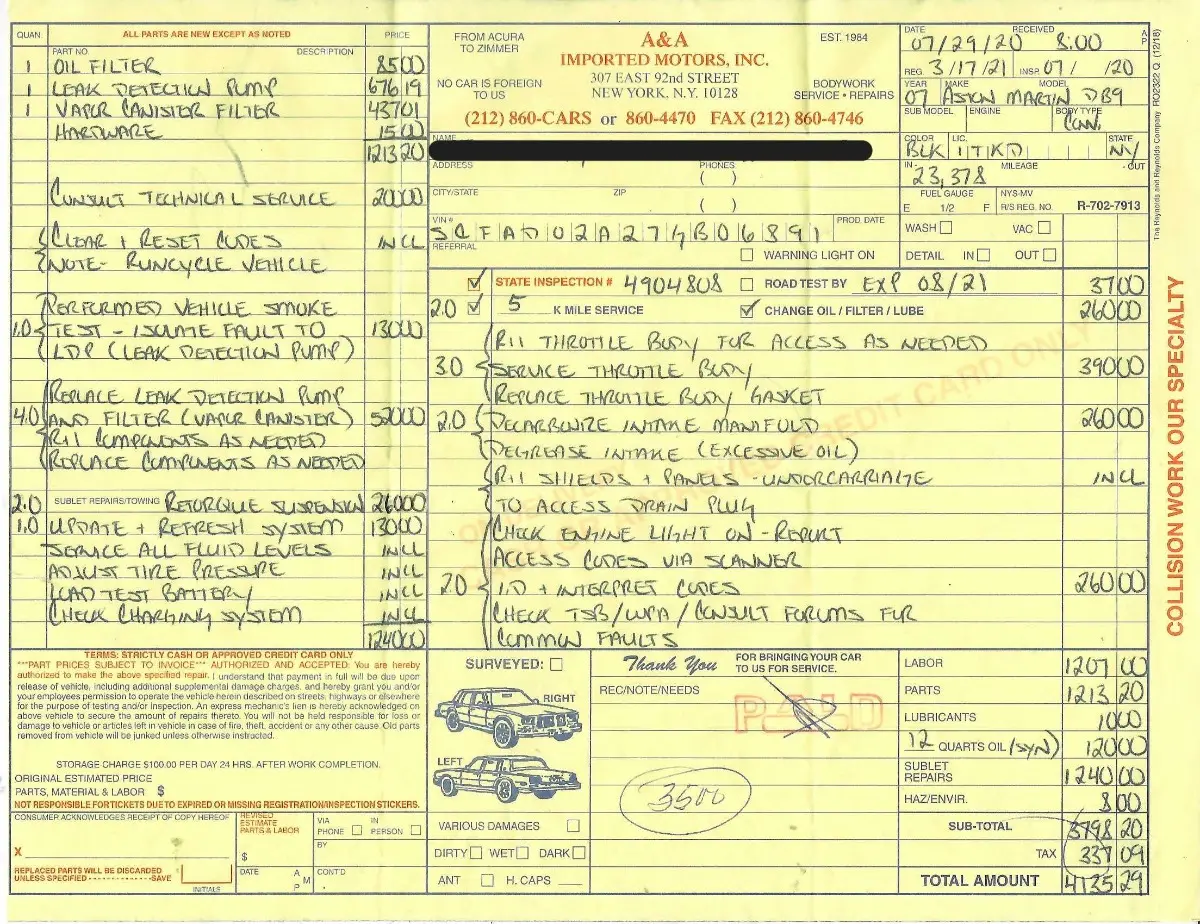 QUAN ALL PARTS ARE NEW EXCEPT AS NOTED PRICE
PART NO. DESCRIPTION
1 OIL FILTER 85 00
1 LEAK DETECTION PUMP 676 19
1 VAPOR CANISTER FILTER 437 01
HARDWARE 15 00
1213 20
CONSULT TECHNICAL SERVICE 200 00
CLEAR + RESET CODES INCL
NOTE- RUNCYCLE VEHICLE
PERFORMED VEHICLE SMOKE
1.0 TEST - ISOLATE FAULT TO 130 00
LDP (LEAK DETECTION PUMP)
REPLACE LEAK DETECTION PUMP
4.0 AND FILTER (VAPOR CANISTER) 520 00
R+I COMPONENTS AS NEEDED
REPLACE COMPONENTS AS NEEDED
2.0 SUBLET REPAIRS/TOWING RETORQUE SUSPENSION 260 00
1.0 UPDATE + REFRESH SYSTEM 130 00
SERVICE ALL FLUID LEVELS INCL
ADJUST TIRE PRESSURE INCL
LOAD TEST BATTERY INCL
CHECK CHARGING SYSTEM INCL
1240 00
FROM ACURA
TO ZIMMER
NO CAR IS FOREIGN
TO US
A&A
IMPORTED MOTORS, INC.
307 EAST 92nd STREET
NEW YORK, N.Y. 10128
EST. 1984
BODYWORK
SERVICE • REPAIRS
(212) 860-CARS or 860-4470 FAX (212) 860-4746
NAME
ADDRESS PHONES
( )
CITY/STATE ZIP
( )
VIN # PROD. DATE
SCFAD02A27GB06891
REFERRAL
WARNING LIGHT ON
DATE RECEIVED A P
07/29/20 8:00
REG. 3/17/21 INSP. 07/ /20
YEAR MAKE MODEL
07 ASTON MARTIN DB9
SUB MODEL ENGINE BODY TYPE
CONV.
COLOR LIC. STATE
BLK 1TKD NY
IN - MILEAGE - OUT
23,378
FUEL GAUGE NYS-MV
E 1/2 F R/S REG. NO. R-702-7913
WASH VAC
DETAIL IN OUT
The Reynolds and Reynolds Company RO2322 Q (12/18)
STATE INSPECTION # 4904808 ROAD TEST BY EXP 08/21 37 00
2.0 5 K MILE SERVICE CHANGE OIL / FILTER / LUBE 260 00
R+I THROTTLE BODY FOR ACCESS AS NEEDED
3.0 SERVICE THROTTLE BODY 390 00
REPLACE THROTTLE BODY GASKET
2.0 DECARBONIZE INTAKE MANIFOLD 260 00
DEGREASE INTAKE (EXCESSIVE OIL)
R+I SHIELDS + PANELS - UNDORCARRIAGE INCL
TO ACCESS DRAIN PLUG
CHECK ENGINE LIGHT ON - REPORT
ACCESS CODES VIA SCANNER
2.0 I.D + INTERPRET CODES 260 00
CHECK TSB/WPA/CONSULT FORUMS FOR
COMMON FAULTS
COLLISION WORK OUR SPECIALTY
TERMS: STRICTLY CASH OR APPROVED CREDIT CARD ONLY
***PART PRICES SUBJECT TO INVOICE*** AUTHORIZED AND ACCEPTED: You are hereby
authorized to make the above specified repair. I understand that payment in full will be due upon
release of vehicle, including additional supplemental damage charges, and hereby grant you and/or
your employees permission to operate the vehicle herein described on streets, highways or elsewhere
for the purpose of testing and/or inspection. An express mechanic's lien is hereby acknowledged on
above vehicle to secure the amount of repairs thereto. You will not be held responsible for loss or
damage to vehicle or articles left in vehicle in case of fire, theft, accident or any other cause. Old parts
removed from vehicle will be junked unless otherwise instructed.
STORAGE CHARGE $100.00 PER DAY 24 HRS. AFTER WORK COMPLETION.
ORIGINAL ESTIMATED PRICE
PARTS, MATERIAL & LABOR $
NOT RESPONSIBLE FOR TICKETS DUE TO EXPIRED OR MISSING REGISTRATION/INSPECTION STICKERS.
CONSUMER ACKNOWLEDGES RECEIPT OF COPY HEREOF
X
REPLACED PARTS WILL BE DISCARDED
UNLESS SPECIFIED - - - - - - - - - - - - - - -SAVE
INITIALS
REVISED
ESTIMATE
PARTS & LABOR
$
VIA PHONE IN PERSON
BY
DATE A M P CONT'D
SURVEYED:
RIGHT
LEFT
VARIOUS DAMAGES
DIRTY WET DARK
ANT H. CAPS
Thank You FOR BRINGING YOUR CAR
TO US FOR SERVICE.
REC/NOTE/NEEDS
PAID
3500
LABOR 1207 00
PARTS 1213 20
LUBRICANTS 10 00
12 QUARTS OIL (SYN) 120 00
SUBLET
REPAIRS 1240 00
HAZ/ENVIR. 8 00
SUB-TOTAL 3798 20
TAX 337 09
TOTAL AMOUNT 4135 29